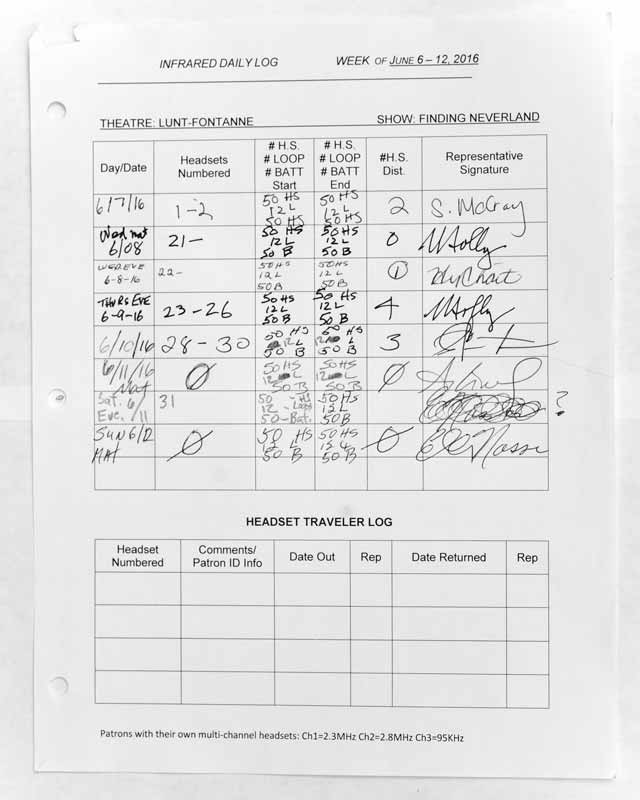 INFRARED DAILY LOG WEEK OF JUNE 6 – 12, 2016
THEATRE: LUNT-FONTANNE SHOW: FINDING NEVERLAND
Day/Date Headsets Numbered # H.S. # LOOP # BATT Start # H.S. # LOOP # BATT End #H.S. Dist. Representative Signature
6/7/16 1-2 50 HS 12 L 50 HS 50 HS 12 L 50 HS 2 S. McCray
Wed mat 6/08 21- 50 HS 12 L 50 B 50 HS 12 L 50 B 0
WED EVE 6-8-16 22- 50 HS 12 L 50 B 50 HS 12 L 50 B 1
THURS EVE 6-9-16 23-26 50 HS 12 L 50 B 50 HS 12 L 50 B 4
6/10/16 28-30 50 HS 12 L 50 B 50 HS 12 L 50 B 3
6/11/16 Mat Ø 50 HS 12 L 50 B 50 HS 12 L 50 B Ø
Sat. 6/11 Eve. 31 50 - HS 12 - Loops 50 - Bat. 50 HS 12 L 50 B ?
SUN 6/12 MAT Ø 50 HS 12 L 50 B 50 HS 12 L 50 B Ø
HEADSET TRAVELER LOG
Headset Numbered Comments/ Patron ID Info Date Out Rep Date Returned Rep
Patrons with their own multi-channel headsets: Ch1=2.3MHz Ch2=2.8MHz Ch3=95KHz